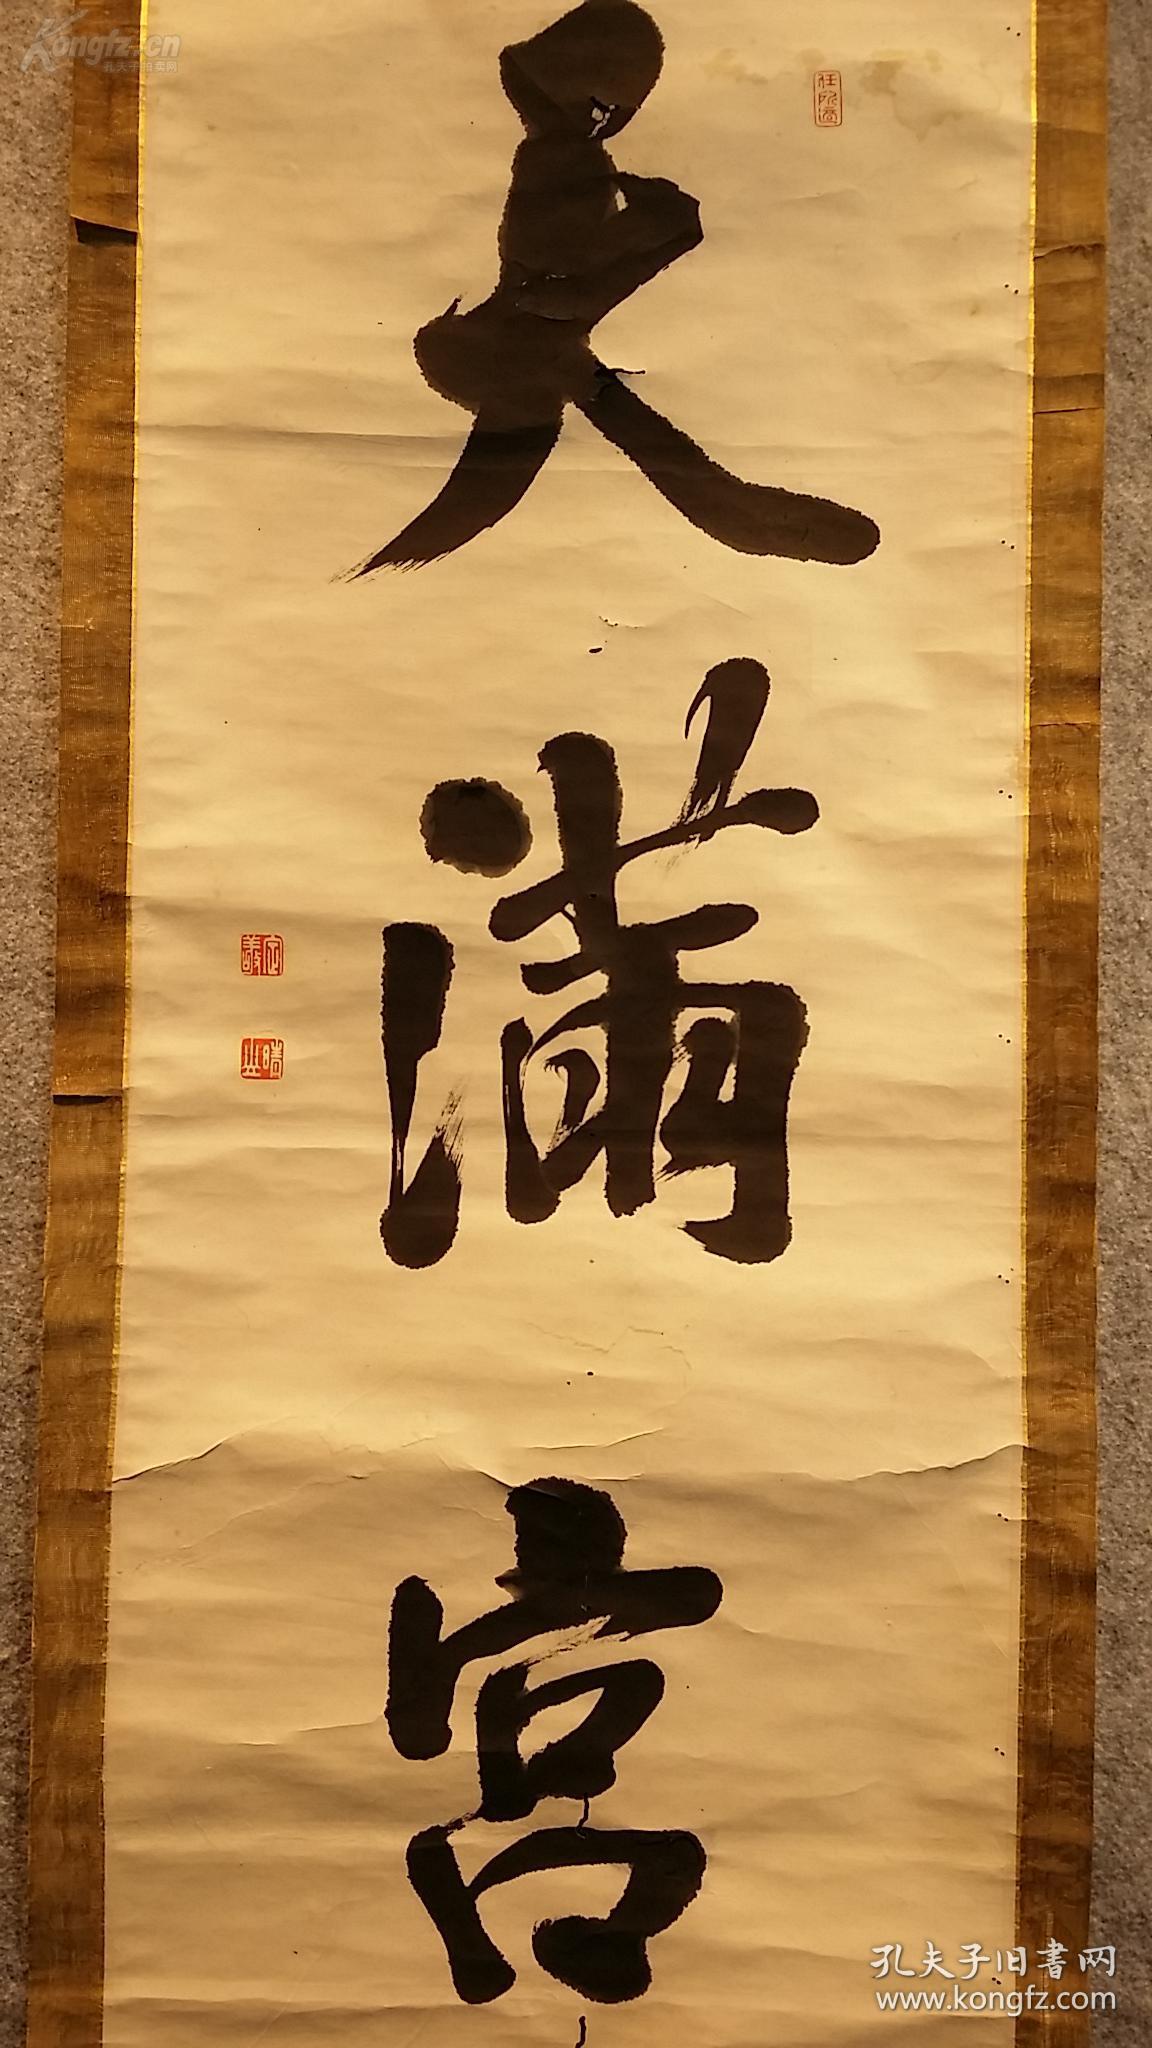 天
滿
宮
Kongfz.cn
孔夫子拍卖网
孔夫子旧書网
www.kongfz.com